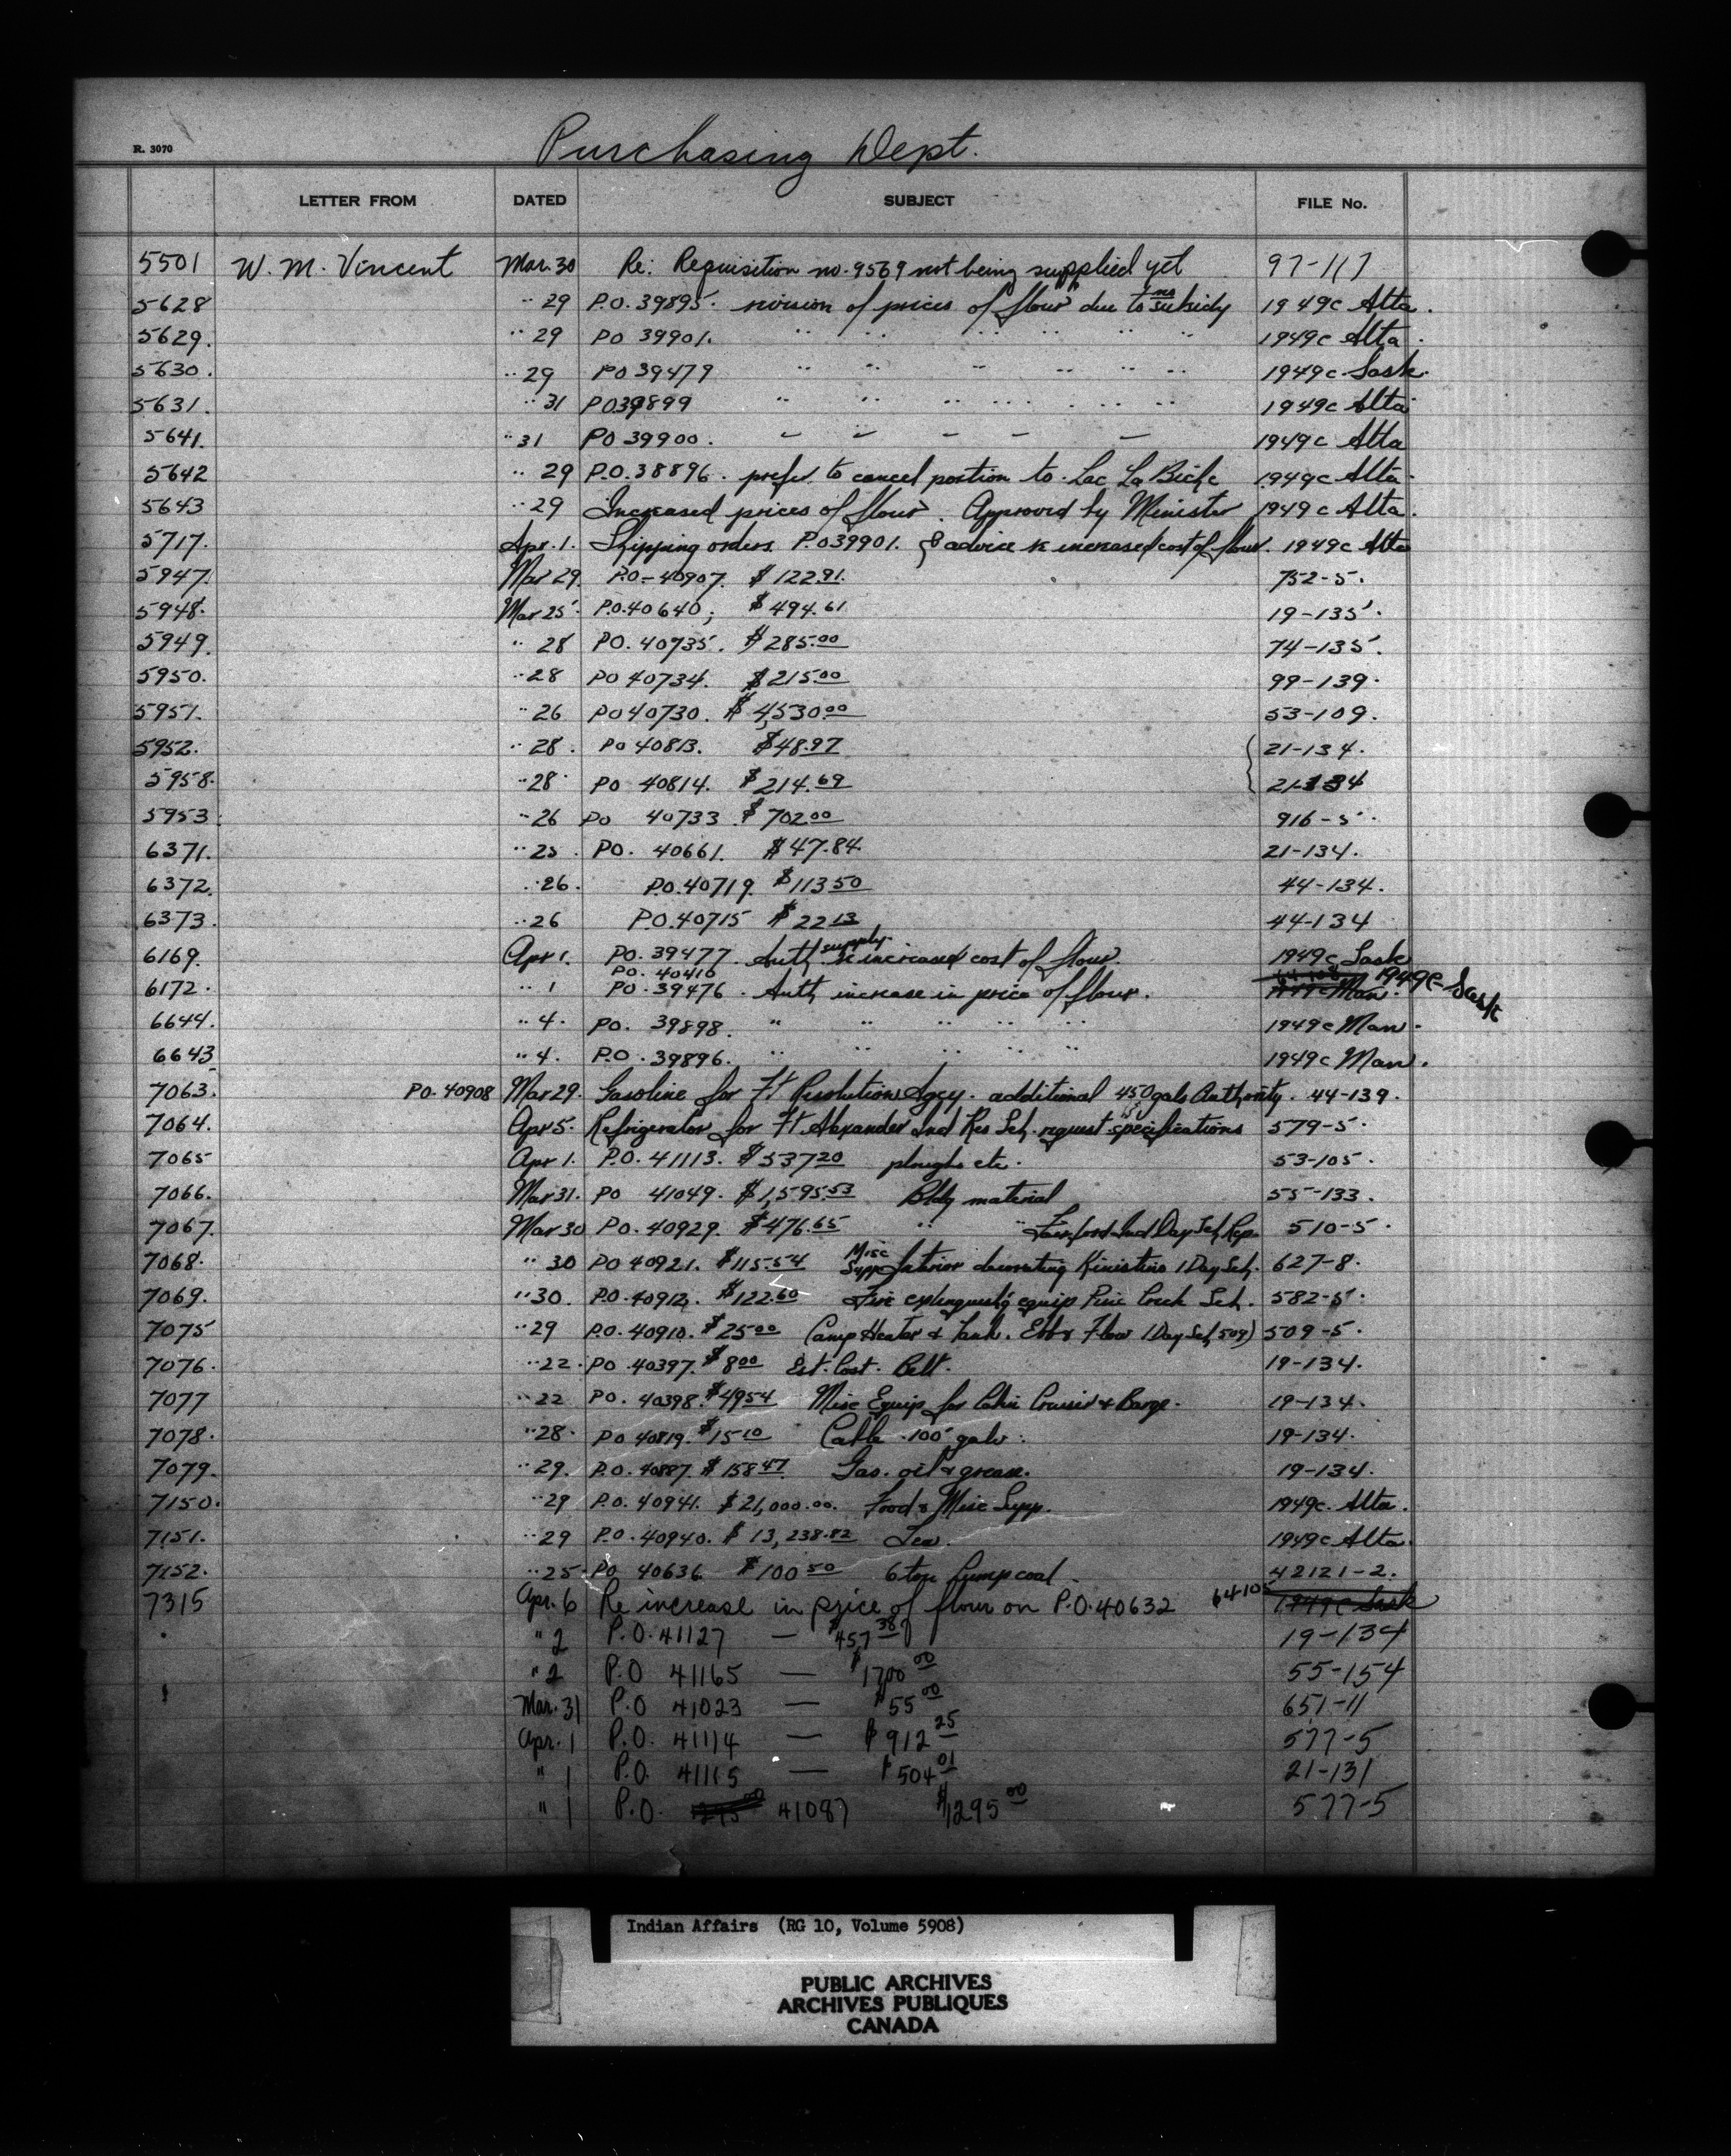 Purchasing Dept.
R. 3070
LETTER FROM DATED SUBJECT FILE No.
5501 W. M. Vincent Mar. 30 Re: Requisition no. 9569 not being supplied yet 97-117
5628 " 29 P.O. 39895. revision of prices of flour due to no subsidy 1949c Alta.
5629. " 29 PO 39901. " " " " " " 1949c Alta.
5630. " 29 PO 39479 " " " " " " 1949c Sask.
5631. " 31 PO 39899 " " " " " " 1949c Alta
5641. " 31 PO 39900. " " " " " 1949c Alta
5642 " 29 P.O. 38896. prefer to cancel portion to Lac La Biche 1949c Alta.
5643 " 29 Increased prices of flour. Approved by Minister 1949c Alta.
5717. Apr. 1. Shipping orders P.O 39901. & advice re increased cost of flour. 1949c Alta
5947. Mar 29. P.O. - 40907. $122.91. 752-5.
5948. Mar 25. P.O. 40640; $494.61 19-135.
5949. " 28 PO. 40735. $285.00 74-135.
5950. " 28 PO 40734. $215.00 99-139.
5951. " 26 PO 40730. $4,530.00 53-109.
5952. " 28. PO 40813. $48.97 21-134.
5958. " 28. PO 40814. $214.69 21-134
5953. " 26 PO 40733 $702.00 916-5.
6371. " 25. PO. 40661. $47.84 21-134.
6372. " 26. P.O. 40719. $113 50 44-134.
6373. " 26 P.O. 40715 $22 13 44-134
6169. Apr 1. PO. 39477. Auth supply re increased cost of flour. 1949c Sask
PO. 40410
6172. " 1 PO. 39476. Auth increase in price of flour. 1949c Man. 1949c Sask
6644. " 4. PO. 39898. " " " " " 1949c Man.
6643 " 4. P.O. 39896. " " " " " 1949c Man.
7063. PO. 40908 Mar 29. Gasoline for Ft Resolution Agcy. additional 450 gals Authority. 44-139.
7064. Apr 5. Refrigerator for Ft. Alexander Ind Res Sch. request specifications 579-5.
7065 Apr 1. P.O. 41113. $537 20 ploughs etc. 53-105.
7066. Mar 31. PO 41049. $1,595.53 Bldg material 55-133.
7067. Mar 30 PO. 40929. $476.65 " " Fairford Ind Day Sch Rep. 510-5.
7068. " 30 PO 40921. $115.54 Misc Supp Interior decorating Kinistino I Day Sch. 627-8.
7069. " 30. P.O. 40912. $122.60 Fire extinguish'g equip Pine Creek Sch. 582-5.
7075 " 29 P.O. 40910. $25 00 (Camp Heater & Tank. Ebb & Flow I Day Sch 509) 509-5.
7076. " 22. PO. 40397. $8 00 Est. Cost. Belt. 19-134.
7077 " 22 PO. 40398. $49 54 Misc Equip for Cabin Cruiser & Barge. 19-134.
7078. " 28. PO 40819. $15 10 Cable 100' galv. 19-134.
7079. " 29. P.O. 40887. $158 47 Gas. oil & grease. 19-134.
7150. " 29 P.O. 40941. $21,000.00. Food & Misc Supp. 1949c. Alta.
7151. " 29 P.O. 40940. $13,238.82 Tea. 1949c Alta.
7152. " 25. PO 40636 $100 50 6 ton lump coal. 42121-2.
7315 Apr. 6 Re increase in price of flour on P.O. 40632 64105 1949c Sask
" 2 P.O. 41127 — $457 38 19-134
" 2 P.O 41165 — $1700 00 55-154
Mar. 31 P.O 41023 — $55 00 651-11
Apr. 1 P.O. 41114 — $912 25 577-5
" 1 P.O. 41115 — $504 01 21-131
" 1 P.O. 41087 $1295 00 577-5
Indian Affairs (RG 10, Volume 5908)
PUBLIC ARCHIVES
ARCHIVES PUBLIQUES
CANADA